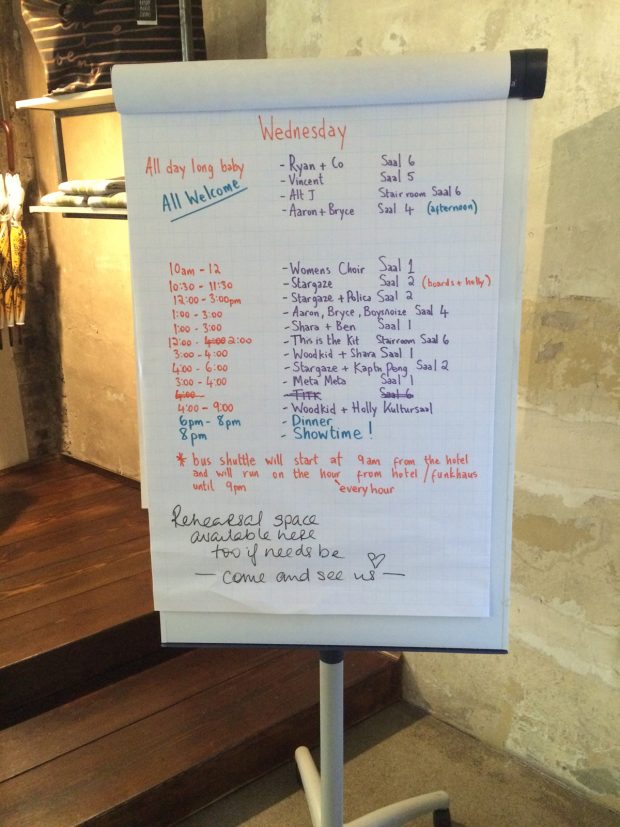 Wednesday
All day long baby
All Welcome
- Ryan + Co Saal 6
- Vincent Saal 5
- Alt J Stairroom Saal 6
- Aaron + Bryce Saal 4 (afternoon)
10am - 12 - Womens Choir Saal 1
10:30 - 11:30 - Stargaze Saal 2 (boards + holly)
12:00 - 3:00pm - Stargaze + Polica Saal 2
1:00 - 3:00 - Aaron, Bryce, Boysnoize Saal 4
1:00 - 3:00 - Shara + Ben Saal 1
12:00 - 4:00 2:00 - This is the Kit Stairroom Saal 6
3:00 - 4:00 - Woodkid + Shara Saal 1
4:00 - 6:00 - Stargaze + Kaptn Pong Saal 2
3:00 - 4:00 - Meta Meta Saal 1
4:00 - TITK Saal 6
4:00 - 9:00 - Woodkid + Holly Kultursaal
6pm - 8pm - Dinner
8pm - Showtime!
* bus shuttle will start at 9am from the hotel
and will run on the hour from hotel / funkhaus
until 9pm every hour
Rehearsal space
available here
too if needs be
— come and see us ♡ —